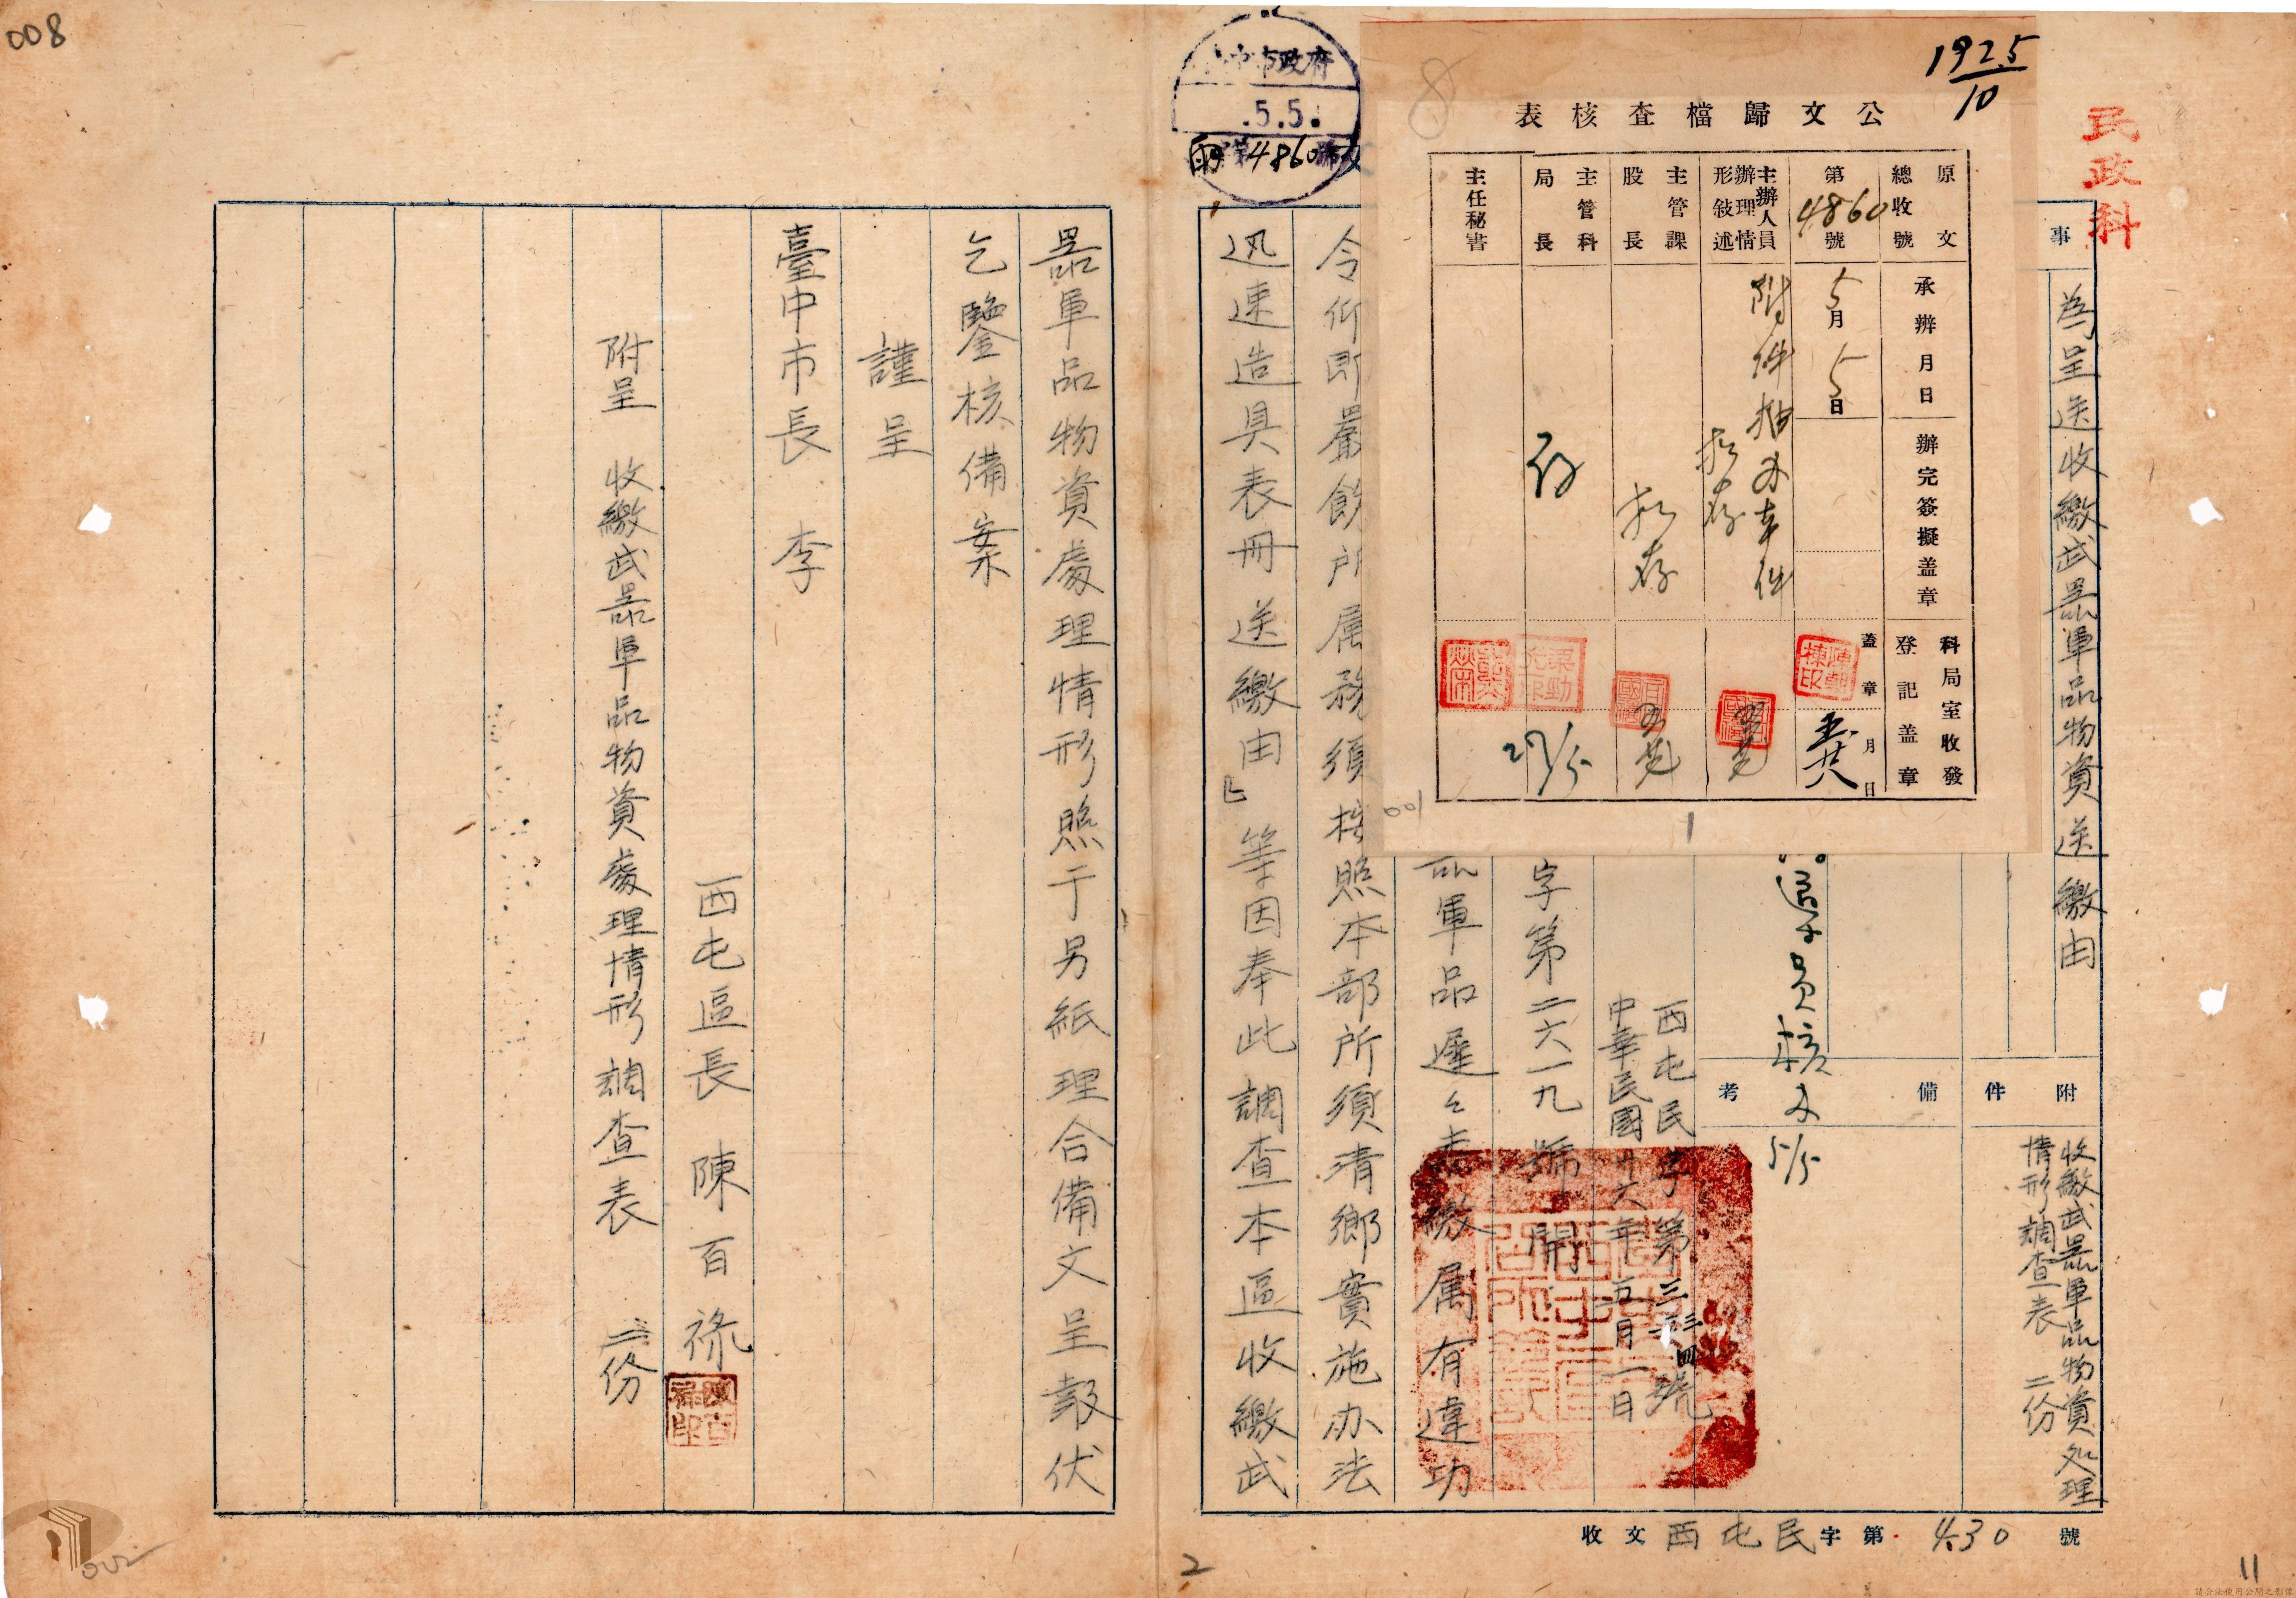 008
1925
10
民政科
中市政府
.5.5.
第4860號
8
公文歸檔查核表
原文
總收號
承辦月日
辦完簽擬蓋章
科局室收發
登記蓋章
第4860號
5月5日
蓋章
月日
主辦人員
辦理情
形敍述
附件抽办本件
擬存
主管課
股長
擬存
主管科
局長
存
27/5
主任秘書
001
1
事
為呈送收繳武器軍品物資送繳由
附件
收繳武器軍品物資处理
情形調查表 二份
備考
員核办
5/5
西屯民字第三三四號
中華民國卅六年五月一日
字第二六一九號開
器軍品遲遲未繳属有違功
令仰即嚴飭所属務須按照本部所須清鄉實施办法
迅速造具表冊送繳由」等因奉此調查本區收繳武
器軍品物資處理情形照于另紙理合備文呈報伏
乞鑒核備案
謹呈
臺中市長 李
西屯區長 陳百祿
附呈 收繳武器軍品物資處理情形調查表 二份
收文西屯民字第430號
2
11
002
請合法使用公開之影像